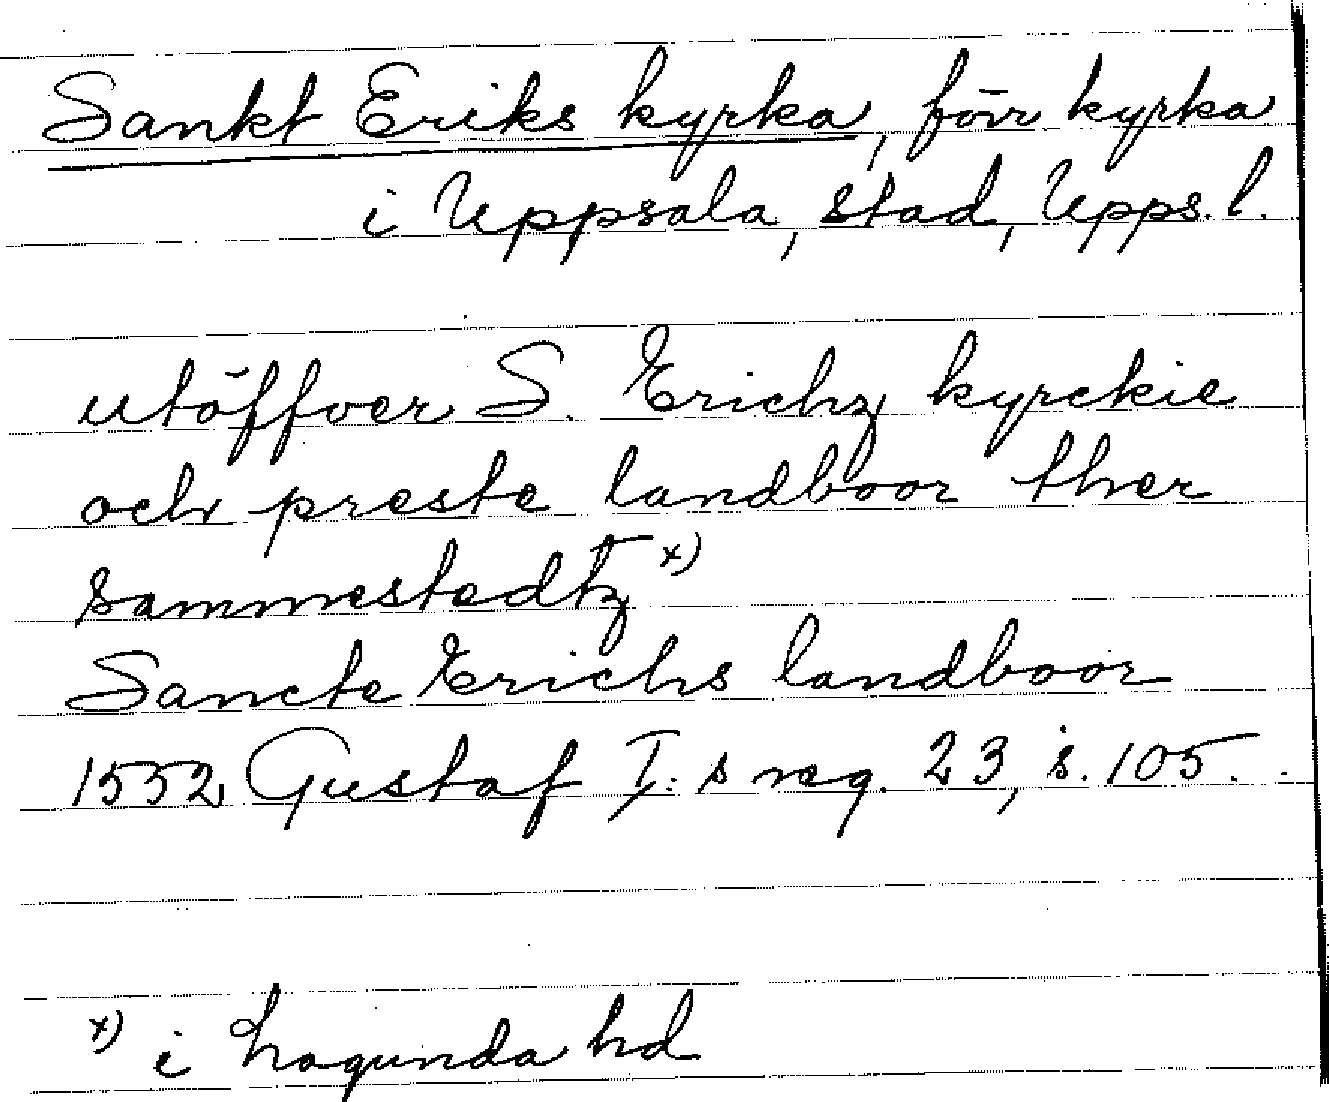 Sankt Eriks kyrka, förr kyrka
i Uppsala, stad, Upps. l.
utöffver S. Erichz kyrckie
och preste landboor ther
sammestedtz x)
Sancte Erichs landboor
1552 Gustaf I:s reg. 23, s. 105.
x) i Lagunda hd